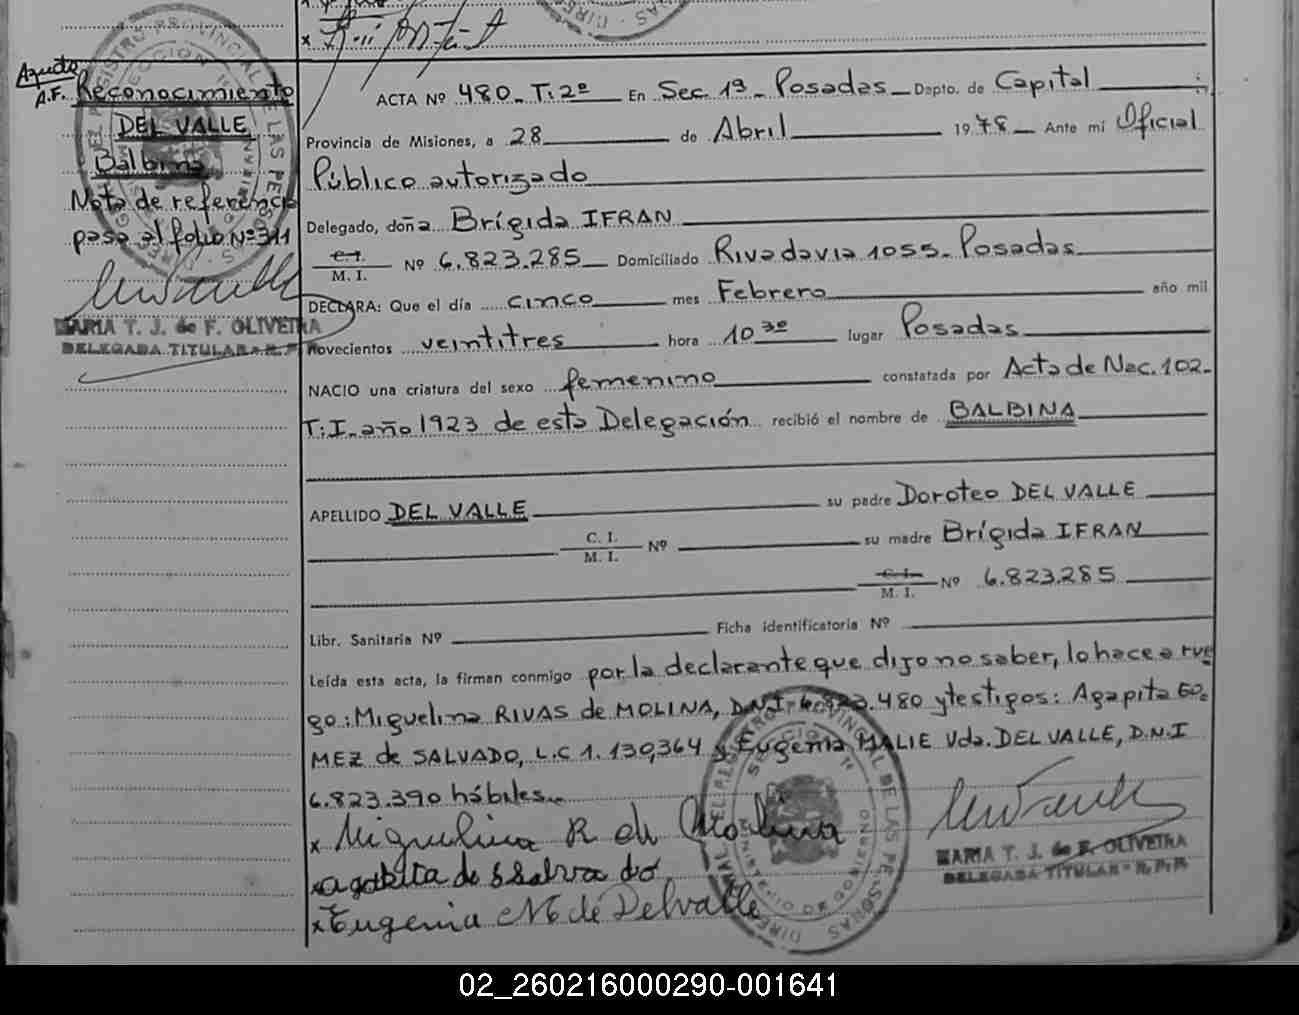 Reconocimiento
DEL VALLE
Balbina
Nota de referencia
pasa al folio Nº 311
MARIA T. J. de F. OLIVEIRA
DELEGADA TITULAR R. P. P.
ACTA Nº 480_ T: 2º En Sec. 1ª_ Posadas_ Dpto. de Capital
Provincia de Misiones, a 28 de Abril 1978_ Ante mí Oficial
Público autorizado
Delegado, doña Brígida IFRAN
C. I.
M. I. Nº 6.823.285_ Domiciliado Rivadavia 1055_ Posadas
DECLARA: Que el día cinco mes Febrero año mil
novecientos veintitres hora 10 30 lugar Posadas
NACIO una criatura del sexo femenino constatada por Acta de Nac. 102_
T: I_ año 1923 de esta Delegación recibió el nombre de BALBINA
APELLIDO DEL VALLE su padre Doroteo DEL VALLE
C. I.
M. I. Nº su madre Brígida IFRAN
C. I.
M. I. Nº 6.823.285
Libr. Sanitaria Nº Ficha identificatoria Nº
Leída esta acta, la firman conmigo por la declarante que dijo no saber, lo hace a rue
go: Miguelina RIVAS de MOLINA, D.N.I 6.823.480 y testigos: Agapita GO=
MEZ de SALVADO, L.C 1.130,364 y Eugenia MALIE Vda. DEL VALLE, D.N.I
6.823.390 hábiles_
x Miguelina R de Molina
x agapita de Salvado
x Eugenia M de Delvalle
MARIA T. J. de F. OLIVEIRA
DELEGADA TITULAR R. P. P.
02_260216000290-001641